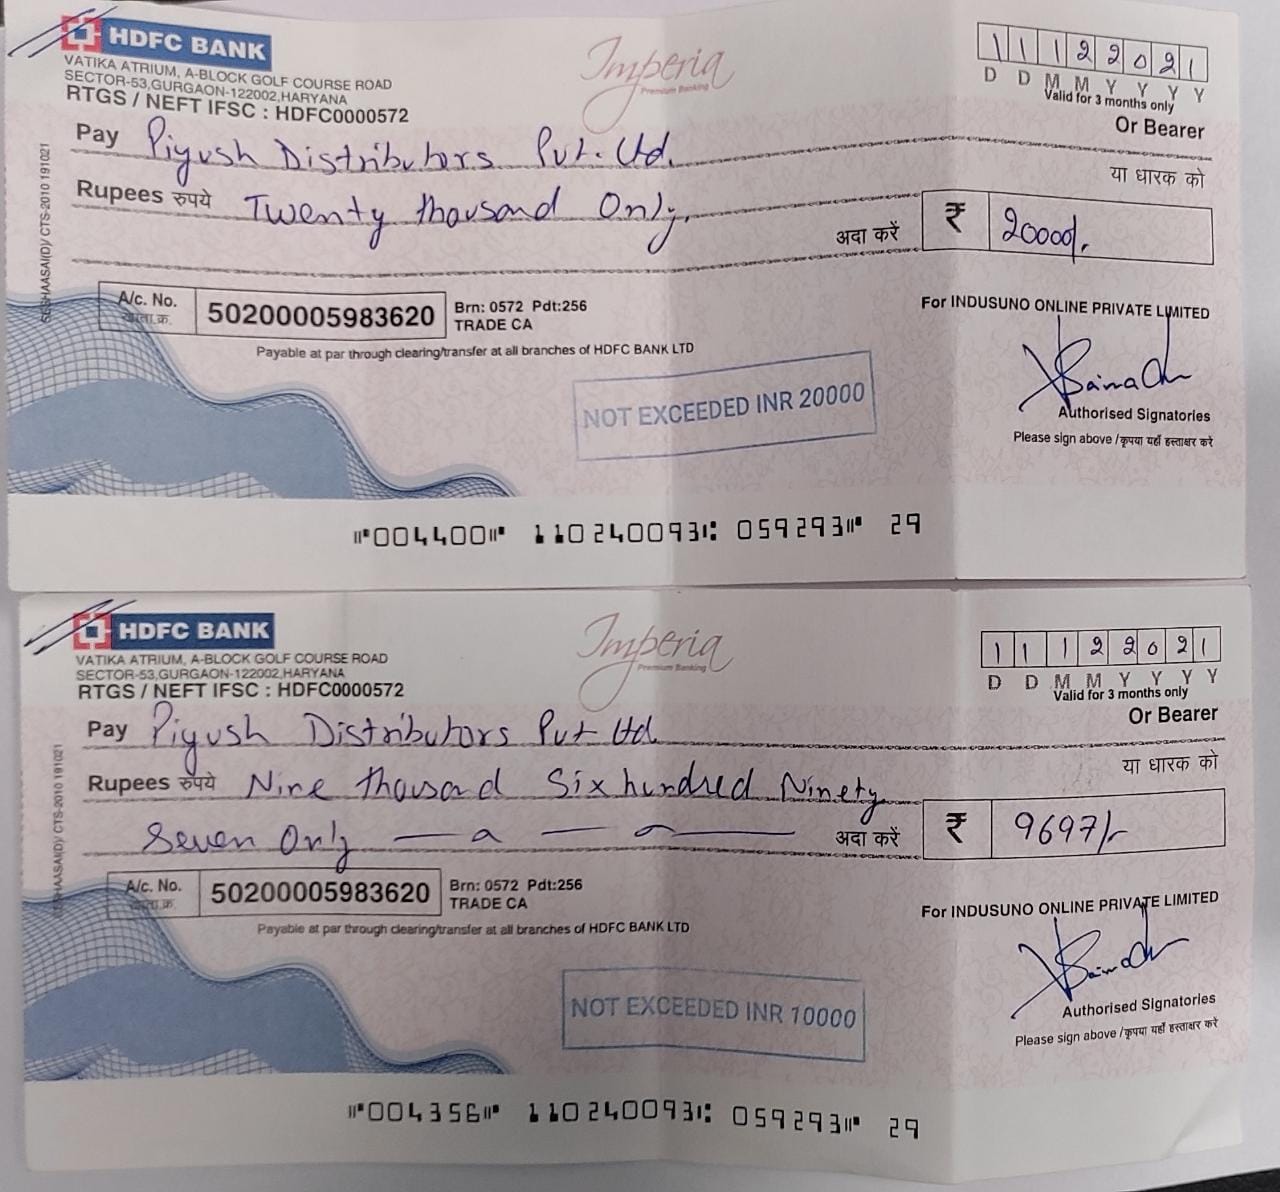 HDFC BANK
VATIKA ATRIUM, A-BLOCK GOLF COURSE ROAD
SECTOR-53,GURGAON-122002,HARYANA
RTGS / NEFT IFSC : HDFC0000572
Imperia
Premium Banking
1 1 1 2 2 0 2 1
D D M M Y Y Y Y
Valid for 3 months only
Pay Piyush Distributors Pvt. Ltd. Or Bearer
या धारक को
Rupees रुपये Twenty thousand Only.
अदा करें ₹ 20000/-
A/c. No. 50200005983620 Brn: 0572 Pdt:256
खाता क्र. TRADE CA
Payable at par through clearing/transfer at all branches of HDFC BANK LTD
For INDUSUNO ONLINE PRIVATE LIMITED
NOT EXCEEDED INR 20000
Authorised Signatories
Please sign above /कृपया यहाँ हस्ताक्षर करे
SESHAASAI(D)/ CTS-2010 191021
⑈004400⑈ 110240093⑆ 059293⑈ 29
HDFC BANK
VATIKA ATRIUM, A-BLOCK GOLF COURSE ROAD
SECTOR-53,GURGAON-122002,HARYANA
RTGS / NEFT IFSC : HDFC0000572
Imperia
Premium Banking
1 1 1 2 2 0 2 1
D D M M Y Y Y Y
Valid for 3 months only
Pay Piyush Distributors Pvt Ltd Or Bearer
या धारक को
Rupees रुपये Nine thousand Six hundred Ninety
Seven Only अदा करें ₹ 9697/-
A/c. No. 50200005983620 Brn: 0572 Pdt:256
खाता क्र. TRADE CA
Payable at par through clearing/transfer at all branches of HDFC BANK LTD
For INDUSUNO ONLINE PRIVATE LIMITED
NOT EXCEEDED INR 10000
Authorised Signatories
Please sign above /कृपया यहाँ हस्ताक्षर करे
SESHAASAI(D)/ CTS-2010 191021
⑈004356⑈ 110240093⑆ 059293⑈ 29